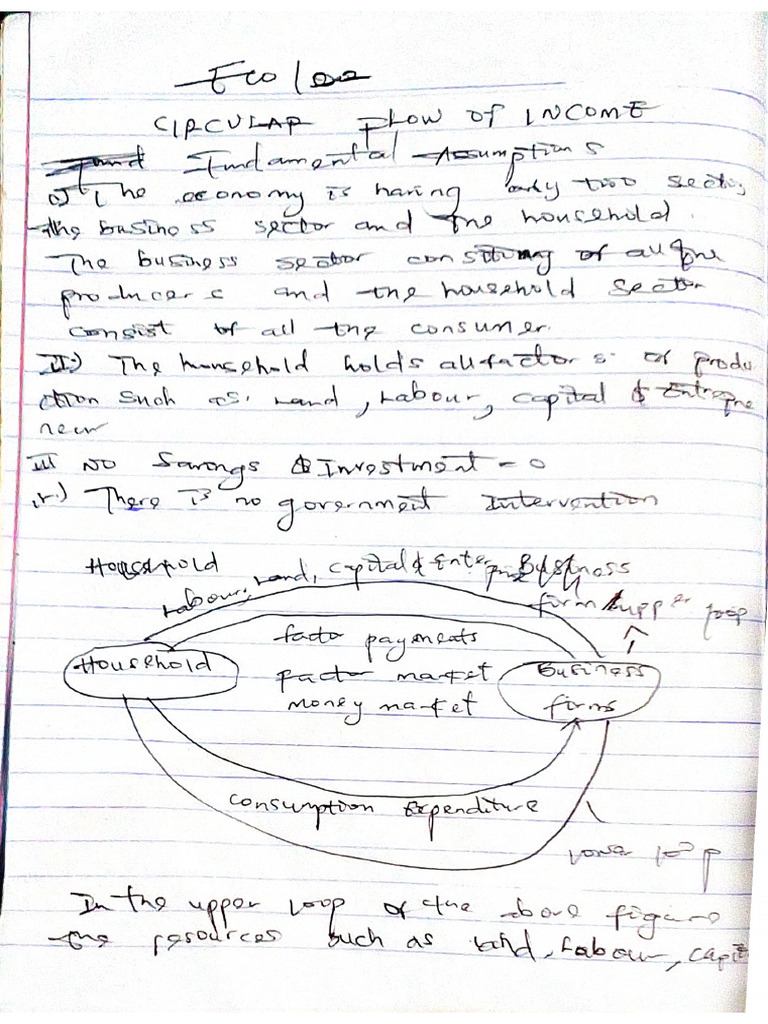 Eco 102
CIRCULAR FLOW OF INCOME
Fundamental Assumptions
i) The economy is having only two sector,
the business sector and the household.
The business sector consisting of all the
producers and the household sector
consist of all the consumer.
II.) The household holds all factors of produ
ction such as: Land, Labour, capital & Entrepre
neur
III No Savings & Investment = 0
iv.) There is no government Intervention
Household Labour, Land, capital & Enterprise Business
firm upper loop
factor payments
Household factor market Business
money market firms
consumption Expenditure
lower loop
In the upper loop of the above figure
the resources such as land, Labour, capit